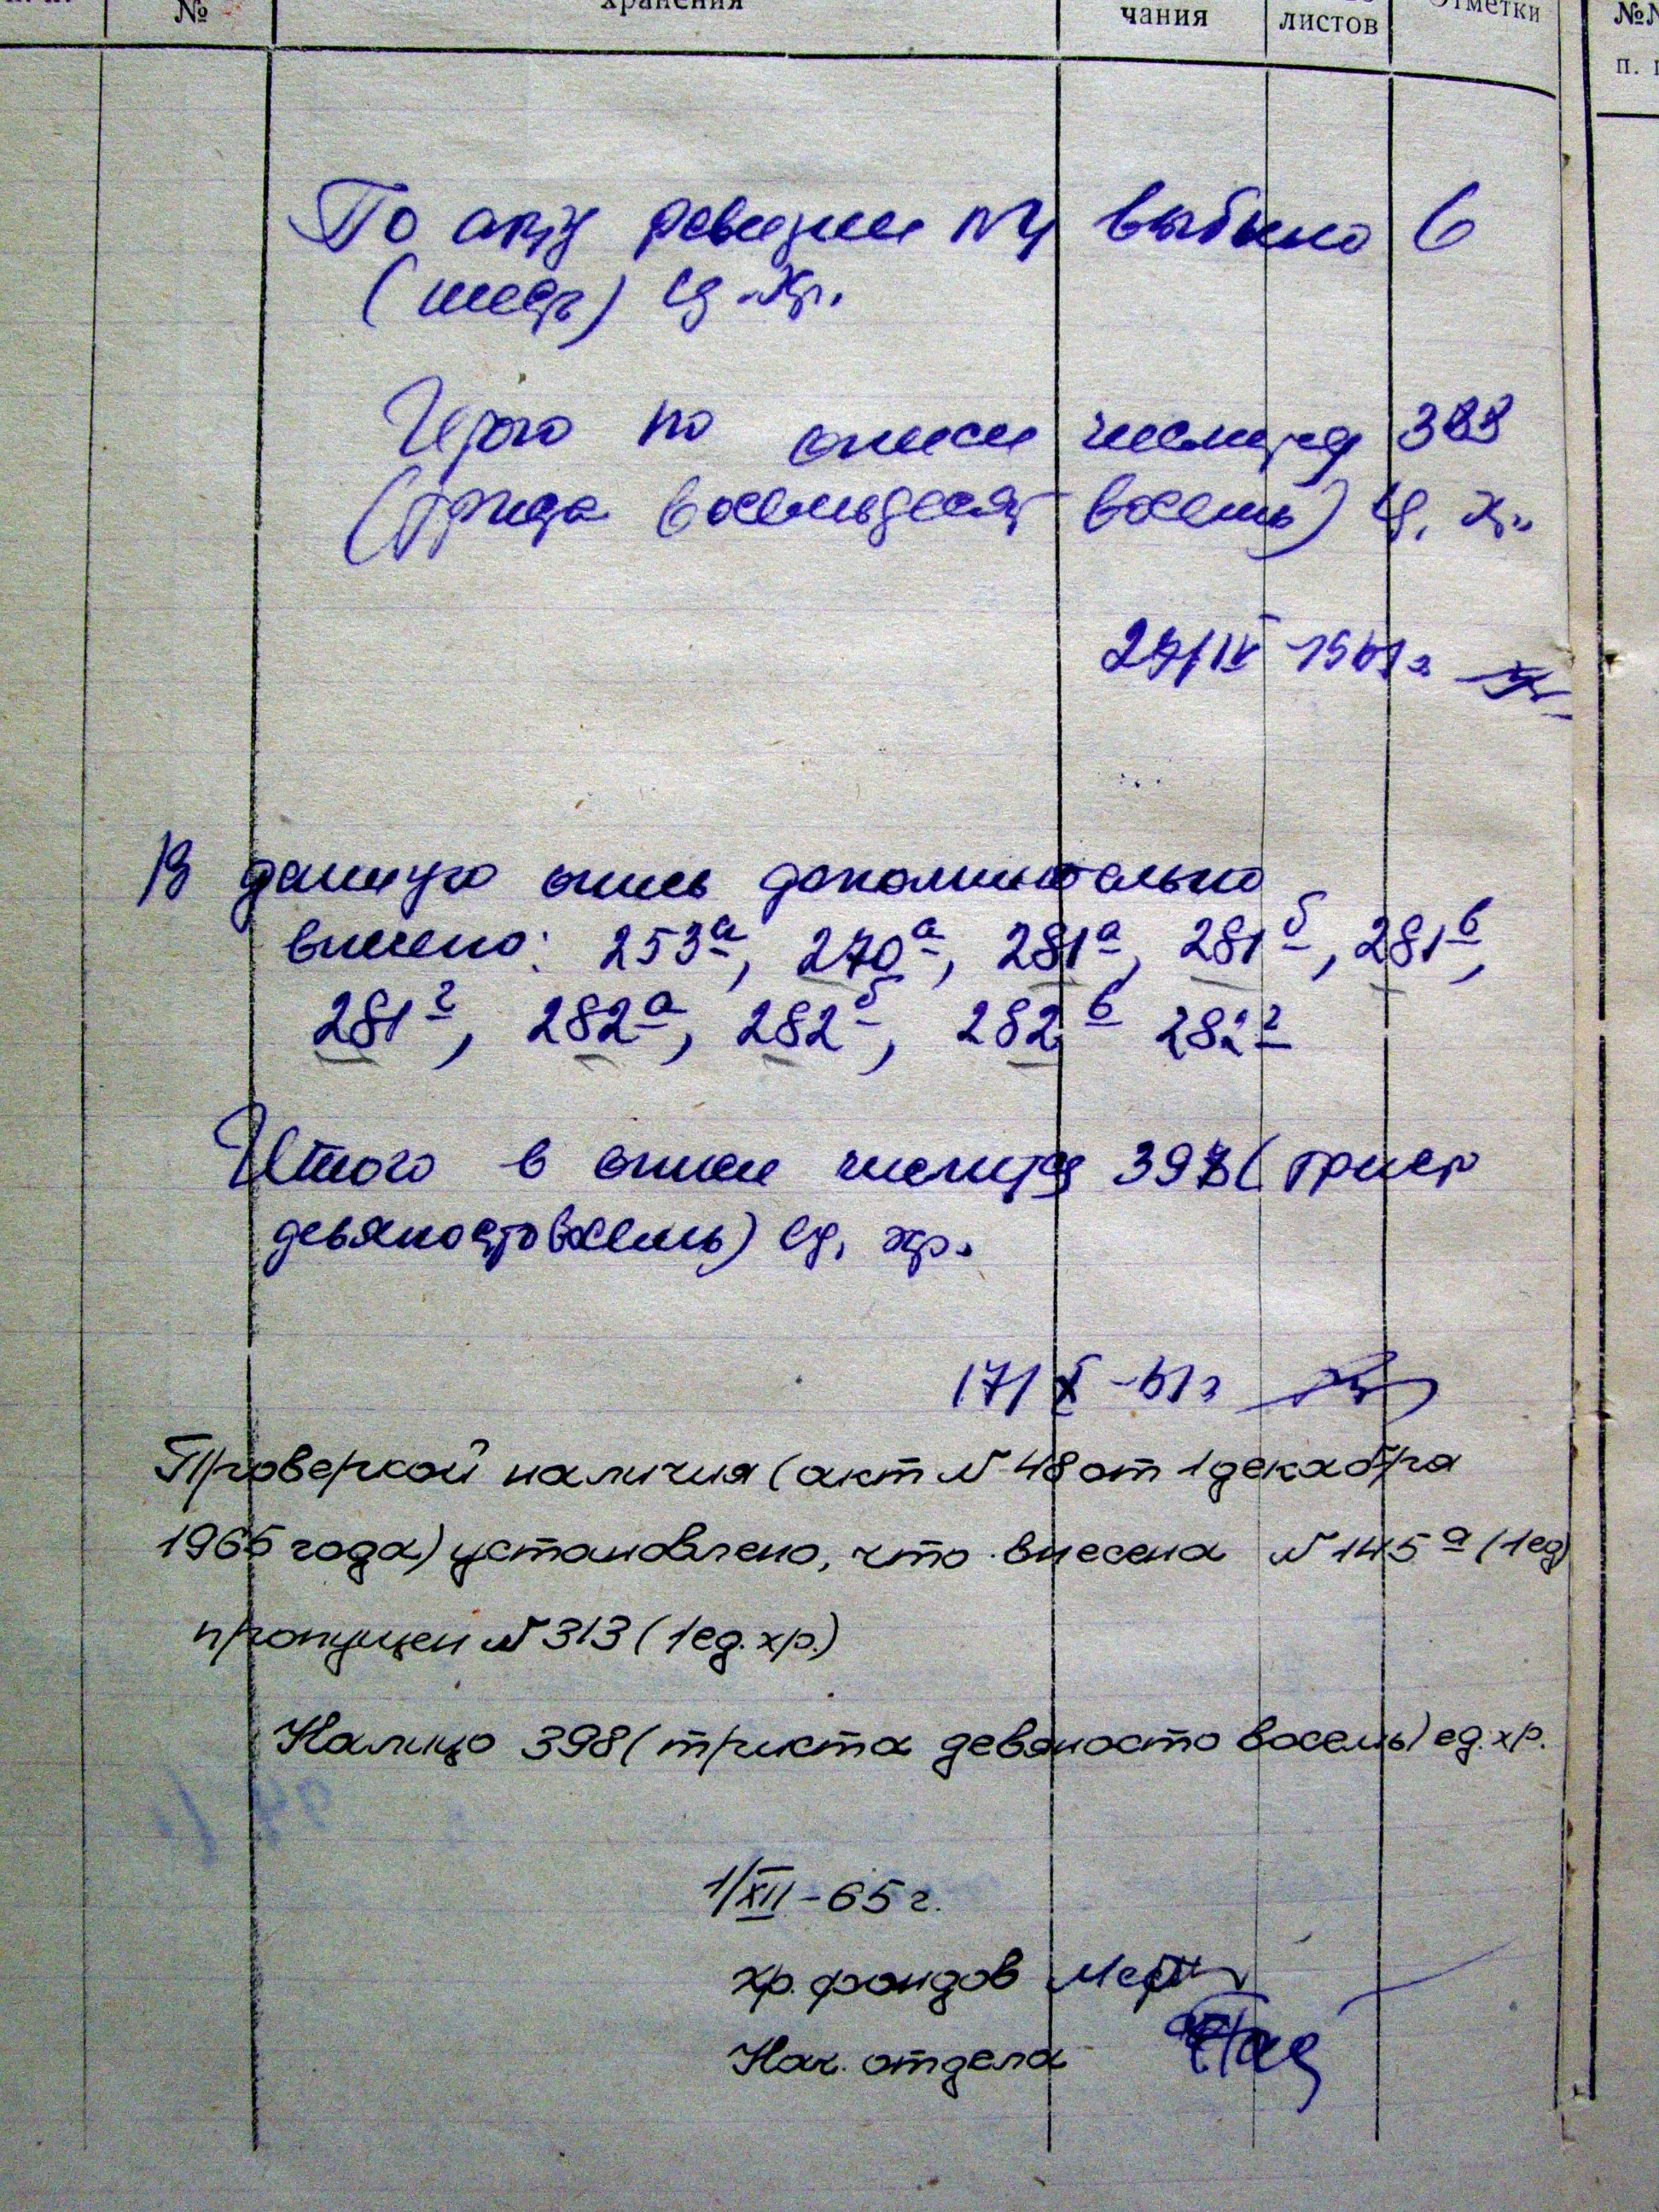 № хранения чания листов Отметки №№
п. п.
По акту ревизии №4 выбыло 6
(шесть) ед. хр.
Итого по описи числится 388
(триста восемьдесят восемь) ед. хр.
29/IV 1961г
В данную опись дополнительно
внесено: 253а, 270а, 281а, 281б, 281в,
281г, 282а, 282б, 282в 282г
Итого в описи числится 398 (триста
девяносто восемь) ед. хр.
17/X-61г
Проверкой наличия (акт № 48 от 1 декабря
1965 года) установлено, что внесена № 145а (1ед)
пропущен № 313 (1 ед. хр.)
Налицо 398 (триста девяносто восемь) ед. хр.
1/XII-65 г.
хр. фондов
Нач. отдела